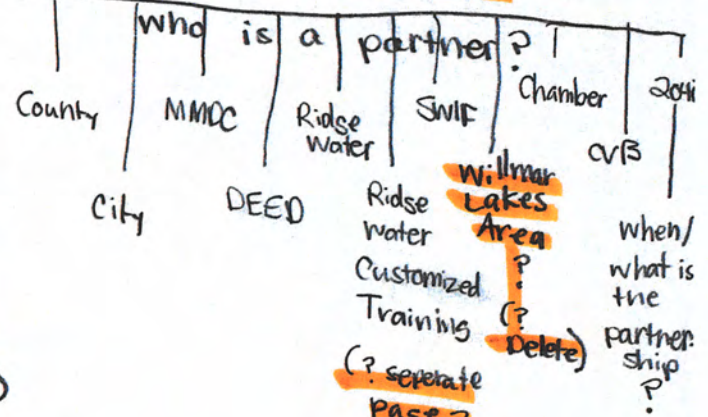 who is a partner?
County
City
MMDC
DEED
Ridge
Water
Ridge
water
Customized
Training
(? seperate
page?
SWIF
Willmar
Lakes
Area
?
(?
Delete)
Chamber
CVB
when/
what is
the
partner
ship
?